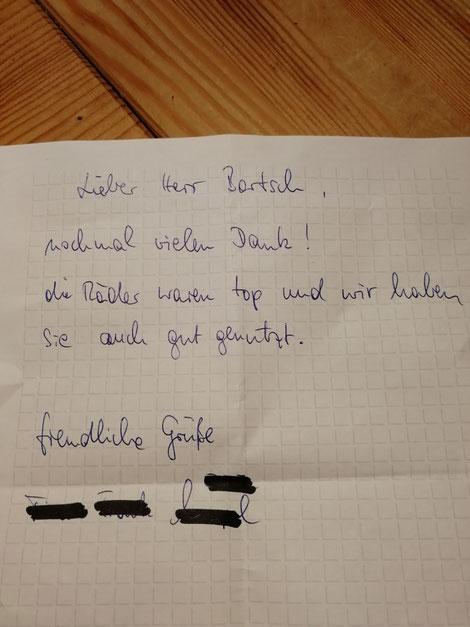 Lieber Herr Bartsch,
nochmal vielen Dank!
die Räder waren top und wir haben
sie auch gut genutzt.
freundliche Grüße